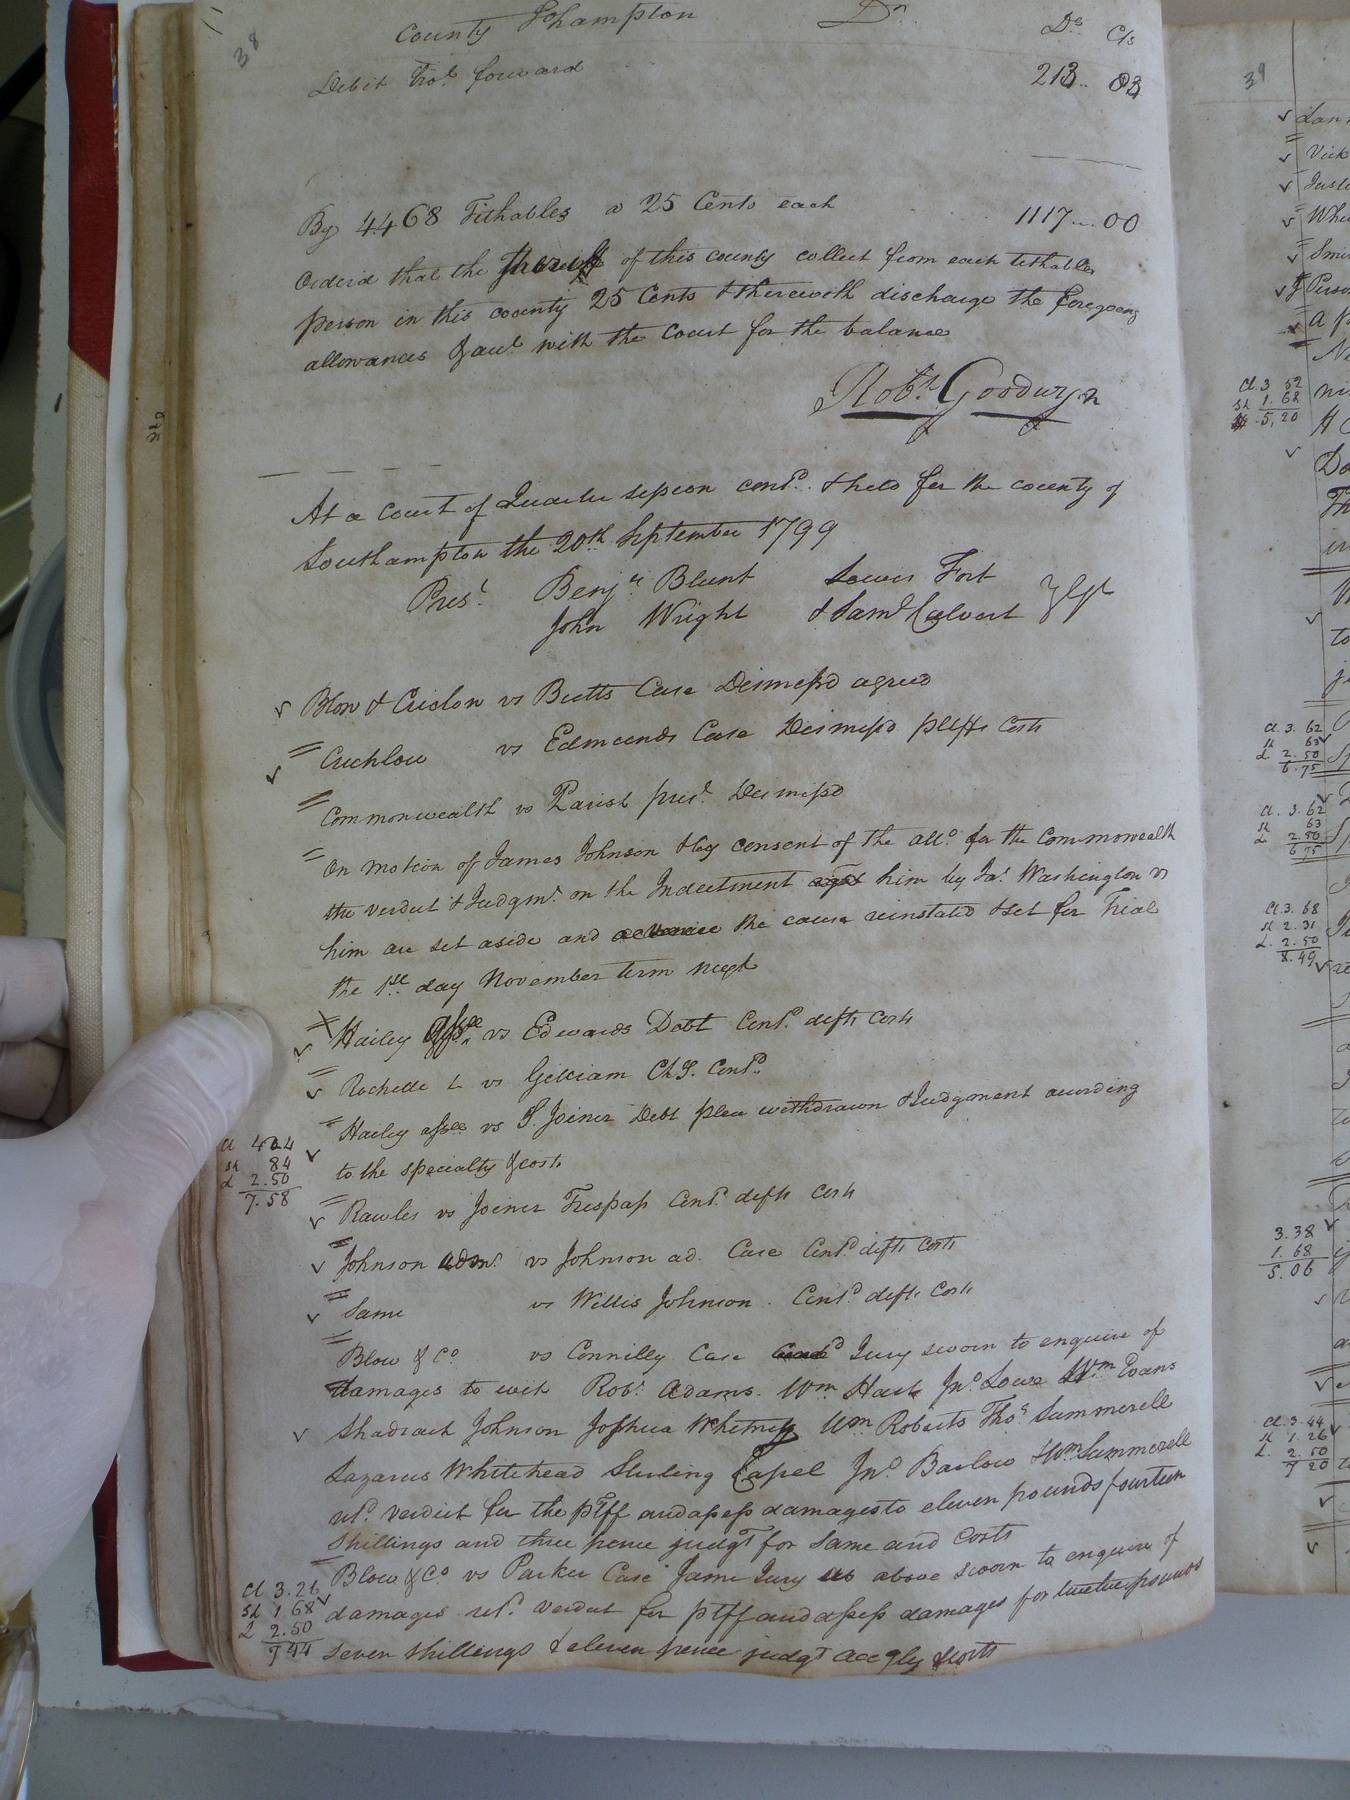 38
County Shampton Dr Ds Cts
Debit bro.t forward 213.. 03
By 4468 Tithables a 25 Cents each 1117....00
Orderd that the Sheriff of this county collect from each tithable
person in this county 25 Cents & therewith discharge the foregoing
allowances & acct with the court for the balance
Robt. Goodwyn
At a Court of Quarter session contd. & held for the county of
Southampton the 20th September 1799
Prest. Benjn Blunt Lewis Fort
John Wright & Saml Calvert Gt
Blow & Cuclow vs Butts Case Dismissd agreed
Cuchlow vs Edmunds Case Dismissd pltffs Costs
Commonwealth vs Parish prest. Dismissd
On motion of James Johnson & by consent of the atto. for the Commonwealth
the verdict & Judgmt. on the Indictment agst him by Jas. Washington vs
him are set aside and the cause reinstated & set for Trial
the 1st day November term next
Hailey assee vs Edwards Debt Contd. defts Costs
Rochelle L vs Gilliam Ch S. Contd.
Hailey assee vs S. Joiner Debt plea withdrawn & Judgment acording
to the specialty & costs
Cl 404
sh 84
L 2.50
7.58
Rawles vs Joiner Trespass Contd. defts Costs
Johnson admr. vs Johnson ad. Case Contd defts Costs
Same vs Willis Johnson. Contd defts Costs
Blow & Co vs Connilly Case Jury sworn to enquire of
damages to wit Robt. Adams. Wm Hart Jno. Lowe Wm Evans
Shadrach Johnson Joshua Whitney Wm Roberts Thos. Summerell
Lazarus Whitehead Sterling Capel Jno. Barlow & Wm Summerell
retd. verdict for the pltff and assess damages to eleven pounds fourteen
shillings and three pence judgt for same and Costs
Blow & Co vs Parker Case Same Jury as above sworn to enquire of
damages retd. verdict for pltff and assess damages for twelve pounds
seven shillings & eleven pence judgt accgly & costs
Cl 3.26
Sh 1 68
L 2.50
7 44
39
Vick
Cl.3 52
sh 1.68
5,20
Cl. 3. 62
sh 63
L 2.50
6.75
Cl. 3.62
sh 63
L 2 50
6.75
Cl 3. 68
sh 2.31
L. 2.50
8.49
3.38
1.68
5.06
Cl. 3.44
sh 1.26
L. 2.50
7 20